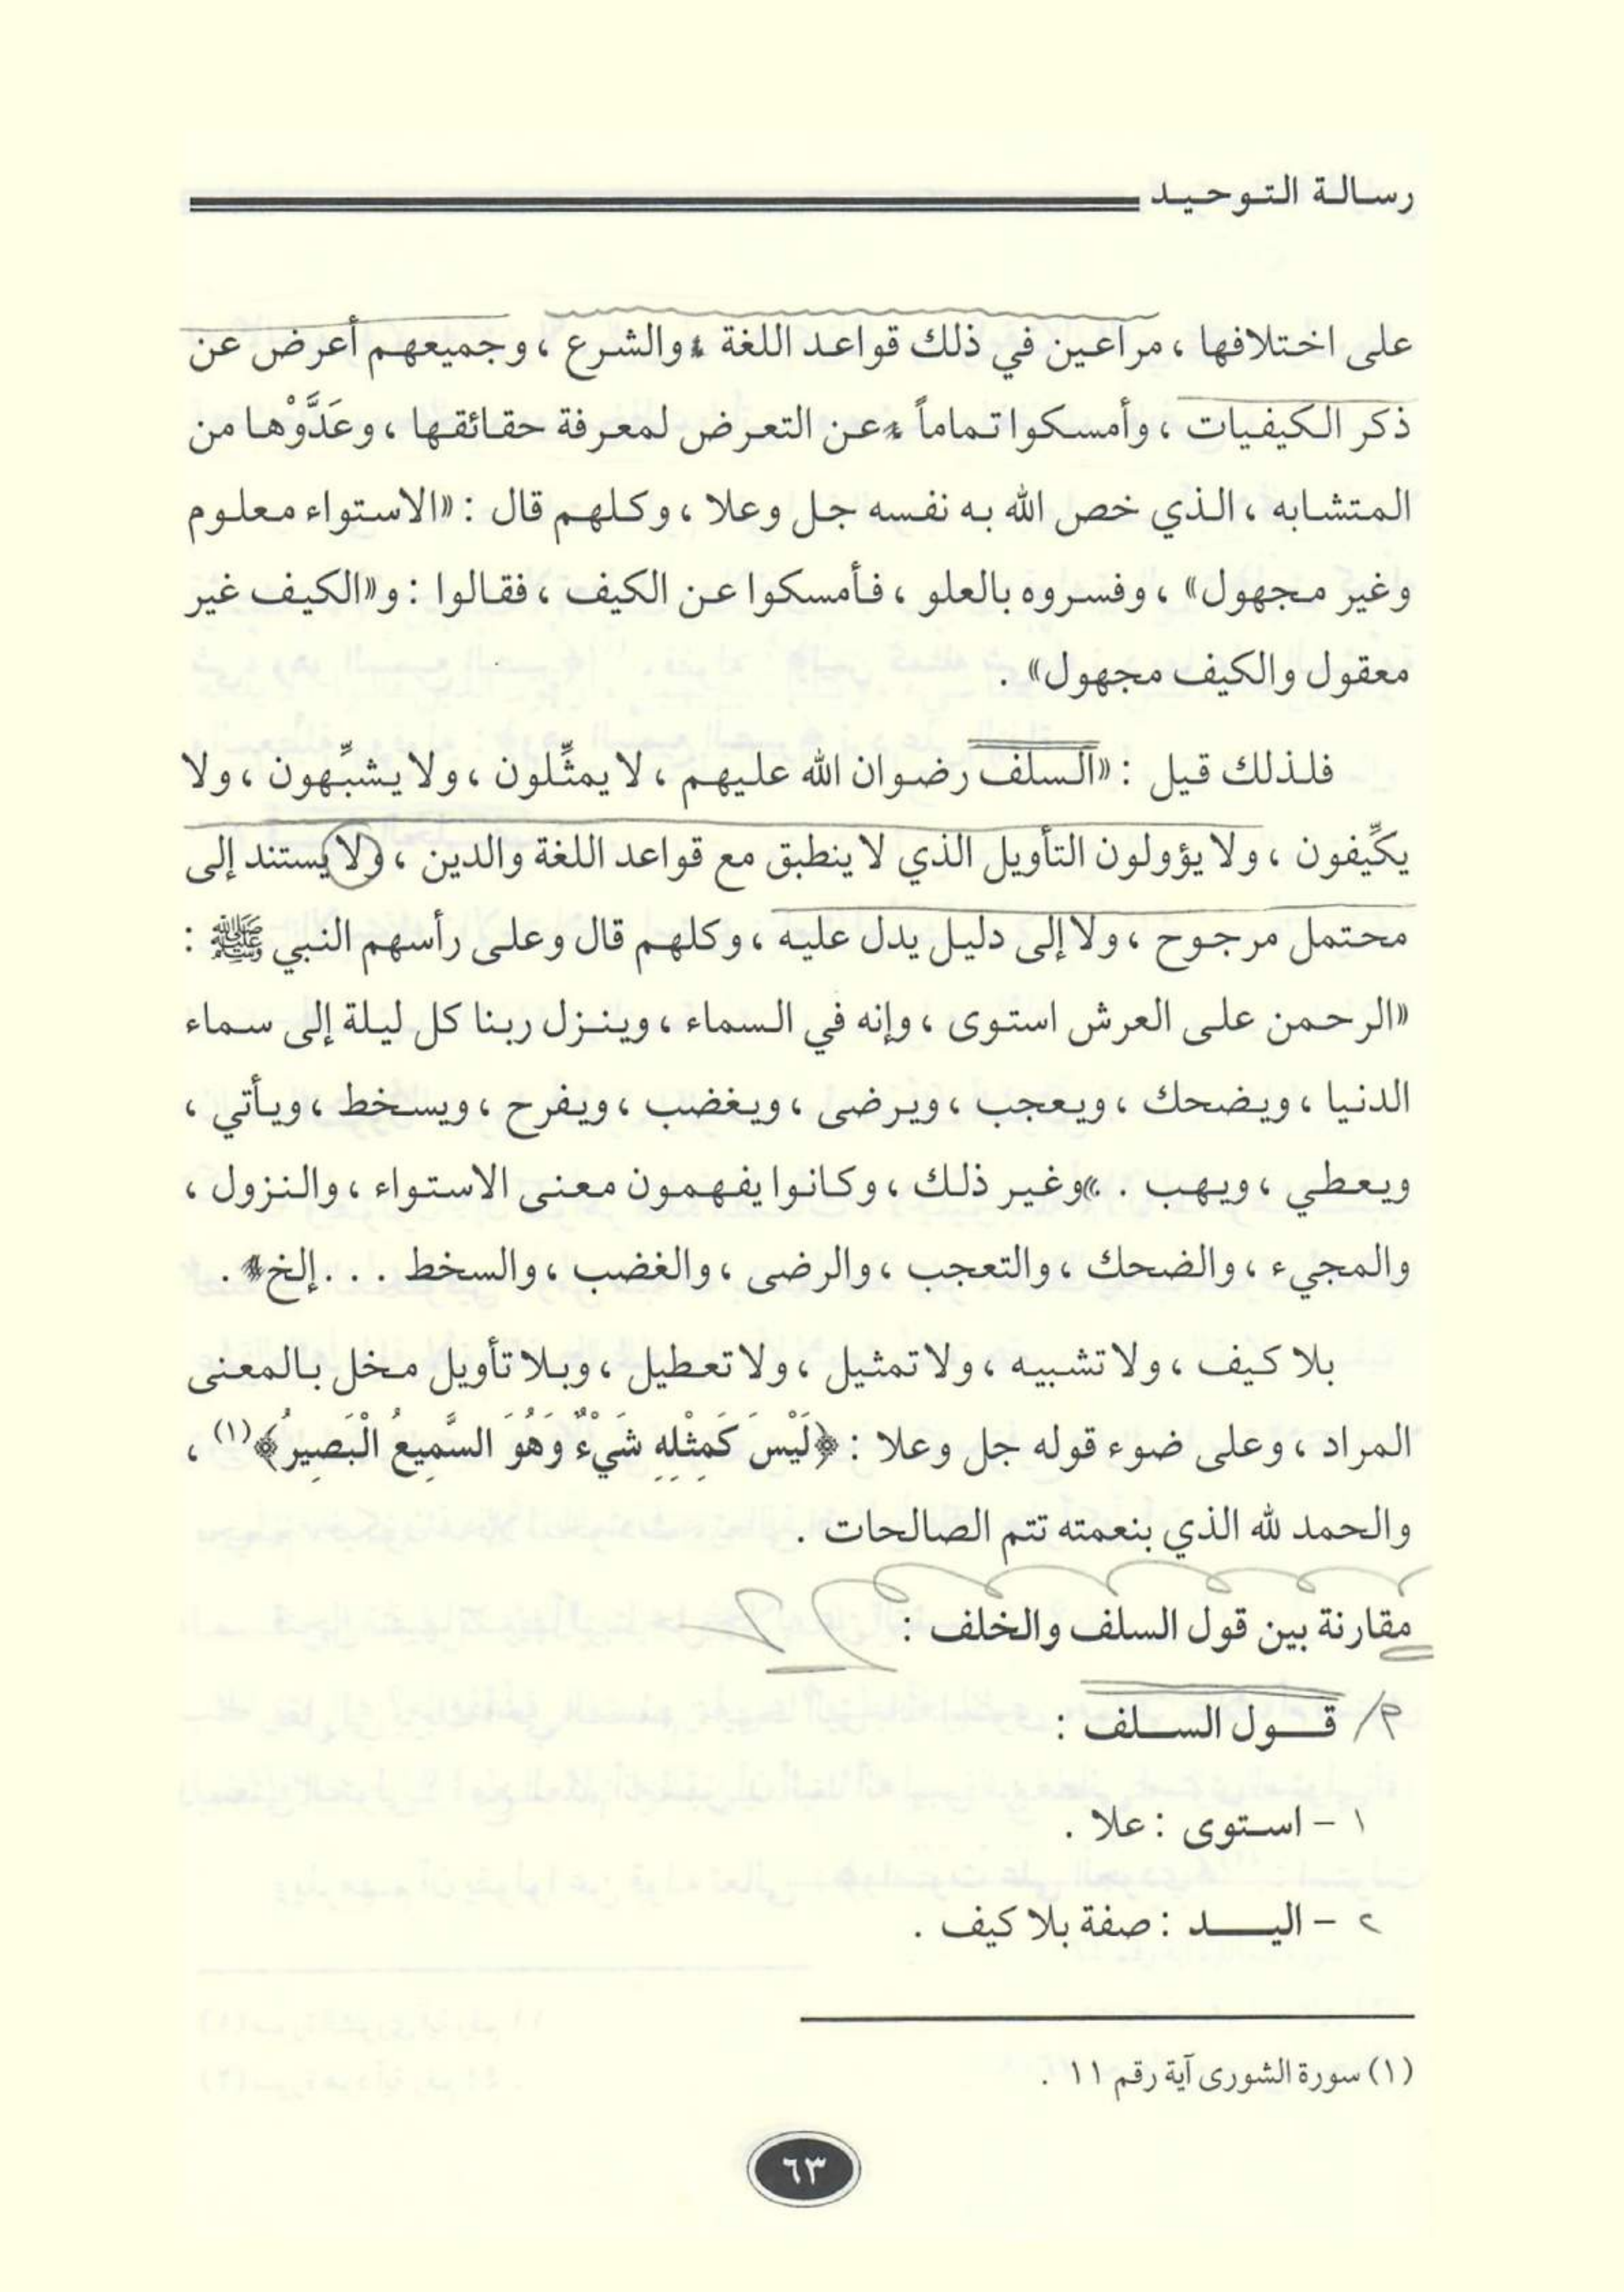 رسالة التوحيد
على اختلافها ، مراعين في ذلك قواعد اللغة والشرع ، وجميعهم أعرض عن
ذكر الكيفيات ، وأمسكوا تماماً عن التعرض لمعرفة حقائقها ، وعَدَّوْها من
المتشابه ، الذي خص الله به نفسه جل وعلا ، وكلهم قال : «الاستواء معلوم
وغير مجهول» ، وفسروه بالعلو ، فأمسكوا عن الكيف ، فقالوا : و«الكيف غير
معقول والكيف مجهول» .
فلذلك قيل : «السلف رضوان الله عليهم ، لا يمثِّلون ، ولا يشبِّهون ، ولا
يكيِّفون ، ولا يؤولون التأويل الذي لا ينطبق مع قواعد اللغة والدين ، ولا يستند إلى
محتمل مرجوح ، ولا إلى دليل يدل عليه ، وكلهم قال وعلى رأسهم النبي ﷺ :
«الرحمن على العرش استوى ، وإنه في السماء ، وينزل ربنا كل ليلة إلى سماء
الدنيا ، ويضحك ، ويعجب ، ويرضى ، ويغضب ، ويفرح ، ويسخط ، ويأتي ،
ويعطي ، ويهب . »وغير ذلك ، وكانوا يفهمون معنى الاستواء ، والنزول ،
والمجيء ، والضحك ، والتعجب ، والرضى ، والغضب ، والسخط . . . إلخ .
بلا كيف ، ولا تشبيه ، ولا تمثيل ، ولا تعطيل ، وبلا تأويل مخل بالمعنى
المراد ، وعلى ضوء قوله جل وعلا : ﴿لَيْسَ كَمِثْلِهِ شَيْءٌ وَهُوَ السَّمِيعُ الْبَصِيرُ﴾(١) ،
والحمد لله الذي بنعمته تتم الصالحات .
مقارنة بين قول السلف والخلف :
م/ قول السلف :
١ - استوى : علا .
٢ - اليد : صفة بلا كيف .
(١) سورة الشورى آية رقم ١١ .
٦٣